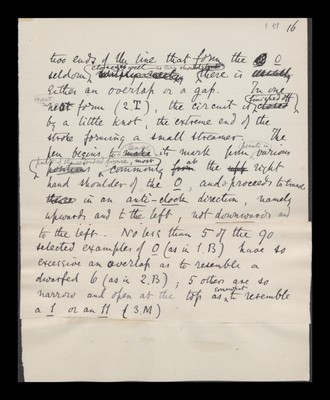 16
two ends of the line that form the O
seldom there is
Either an overlap or a gap. In one
neat form (2.I), the circuit is finished off
by a little knot, the extreme end of the
stroke forming a small streamer. The
pen begins to make its mark from various
parts of the intended figure, most
positions commonly from at the right
hand shoulder of the O, and proceeds to trace
in an anti-clock direction, namely
upwards and to the left, not downwards and
to the left. No less than 5 of the 90
selected examples of O (as in 1.B) have so
excessive an overlap as to resemble a
dwarfed 6 (as in 2.B); 5 others are so
narrow and open at the top as somewhat to resemble
a 1 or an 11 (3.M)